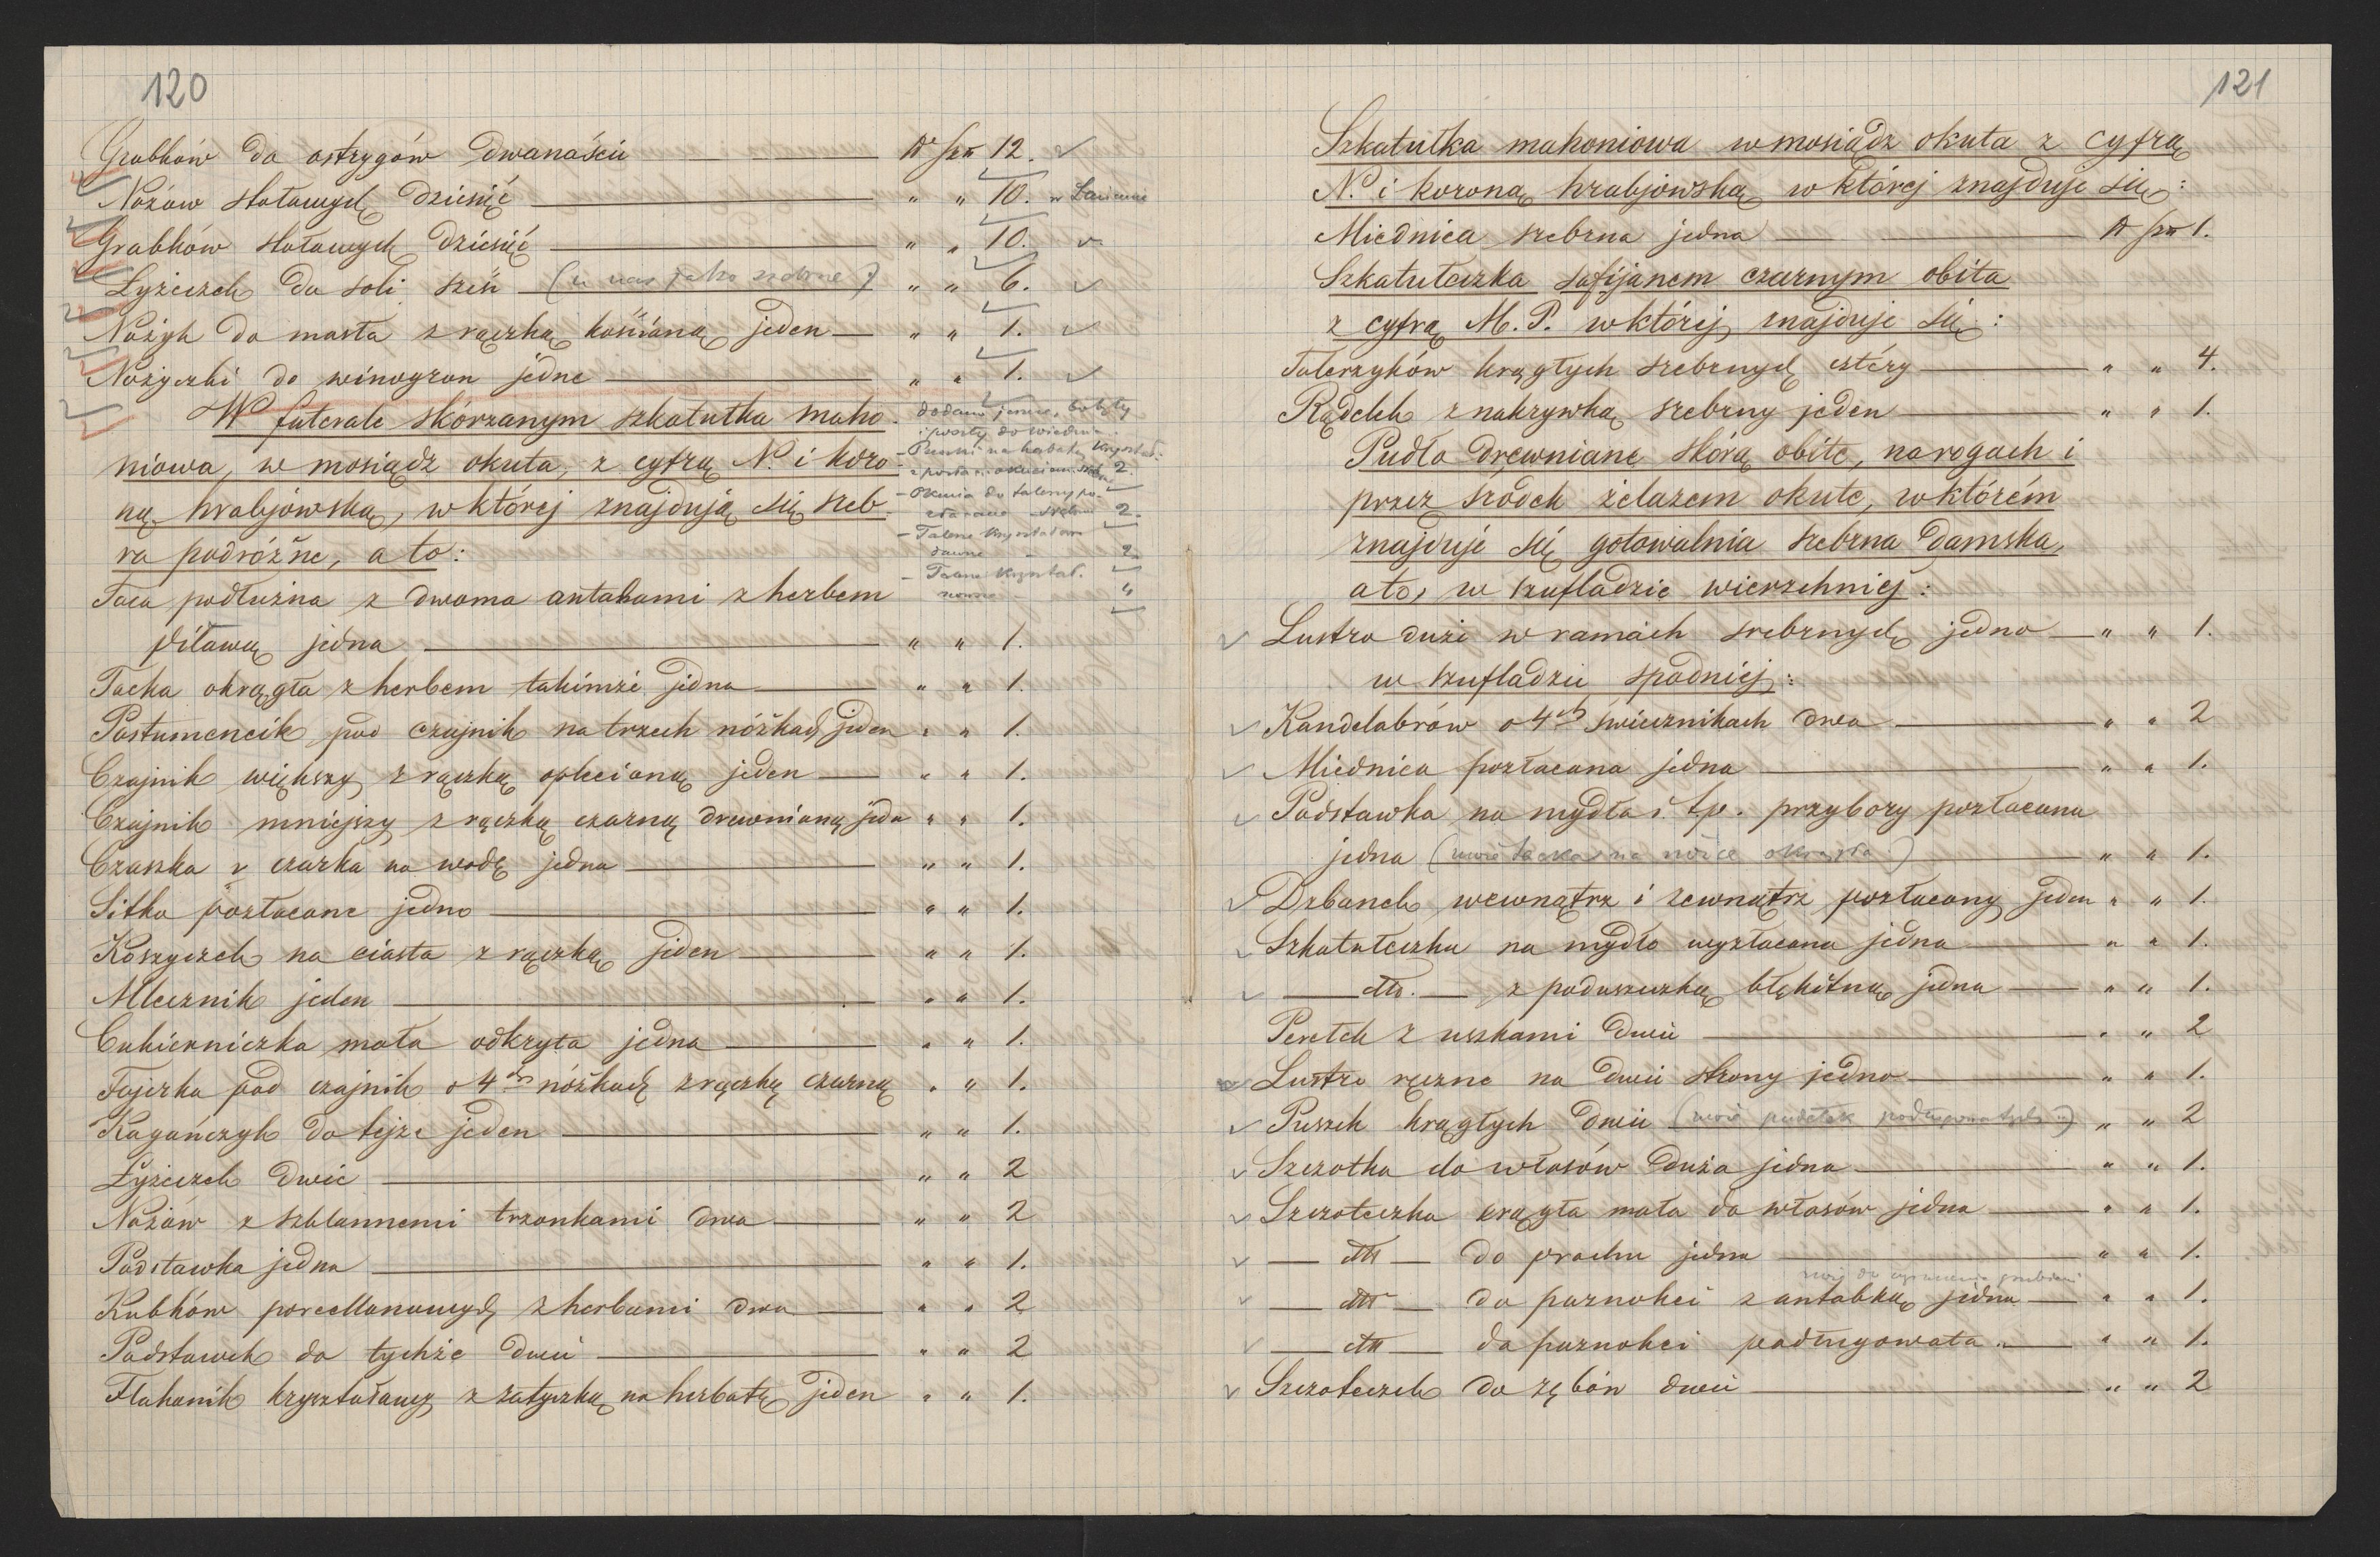 120
Grabków do ostrygów Dwanaście № szt 12.
Nożów stołowych Dziesięć " " 10. w Łańcucie
Grabków stołowych Dziesięć " " 10.
Łyżeczek do soli sześć (u nas jako srebrne) " " 6.
Nożyk do masła z rączką kościaną jeden " " 1.
Nożyczki do winogron jedne " " 1.
W futerale skórzanym szkatułka maho-
niowa, w mosiądz okuta, z cyfrą N. i koro-
ną hrabjowską, w której znajdują się sreb-
ra podróżne, a to:
Taca podłużna z dwoma antabami z herbem
Pilawą jedna " " 1.
Tacka okrągła z herbem takimże jedna " " 1.
Postumencik pod czajnik na trzech nóżkach jeden " " 1.
Czajnik większy z rączką oplecioną jeden " " 1.
Czajnik mniejszy z rączką czarną drewnianą jeden " " 1.
Czaszka v czarka na wodę jedna " " 1.
Sitko pozłacane jedno " " 1.
Koszyczek na ciasta z rączką jeden " " 1.
Mlecznik jeden " " 1.
Cukierniczka mała odkryta jedna " " 1.
Fajerka pod czajnik o 4ch nóżkach z rączką czarną " " 1.
Kagańczyk do tejże jeden " " 1.
Łyżeczek dwie " " 2
Nożów z szklannemi trzonkami dwa " " 2
Podstawka jedna " " 1.
Kubków porcellanowych z herbami dwa " " 2
Podstawek do tychże dwie " " 2
Flakonik kryształowy z zatyczką na herbatę jeden " " 1.
dodano jeszcze
do Wiednia
- Puszki na herbatę kryształ. 2.
2.
- Talerze kryształowe
dawne - 2
- Tacne kryształ.
nowsze - "
121
Szkatułka mahoniowa w mosiądz okuta z cyfrą
N. i koroną hrabjowską, w której znajduje się:
Miednica srebrna jedna № szt 1.
Szkatułeczka safijanem czarnym obita
z cyfrą M. P. w której znajduje się:
Talerzyków krągłych srebrnych cztéry " " 4.
Rądelek z nakrywką srebrny jeden " " 1.
Pudło drewniane skórą obite, na rogach i
przez środek żelazem okute, w którém
znajduje się gotowalnia srebrna Damska,
a to, w szufladzie wierzchniej:
Lustro duże w ramach srebrnych jedno " " 1.
w szufladzie spodniej:
Kandelabrów o 4ch świecznikach dwa " " 2
Miednica pozłacana jedna " " 1.
Podstawka na mydła i t.p. przybory pozłacana
jedna (może tacka na nóżce okrągła) " " 1.
Dzbanek wewnątrz i zewnątrz pozłacany jeden " " 1.
Szkatułeczka na mydło wyzłacana jedna " " 1.
— dto. — z poduszeczką błękitną jedna " " 1.
Peretek z uszkami dwie " " 2
Lustro ręczne na dwie strony jedno " " 1.
Puszek krągłych dwie (może pudełek podługowatych) " " 2
Szczotka do włosów duża jedna " " 1.
Szczoteczka krągła mała do włosów jedna " " 1.
— dto — do prochu jedna " " 1.
może do czyszczenia grzebieni
— dto — do paznokci z antabką jedna " " 1.
— dto — do paznokci podługowata " " 1.
Szczoteczek do zębów dwie " " 2